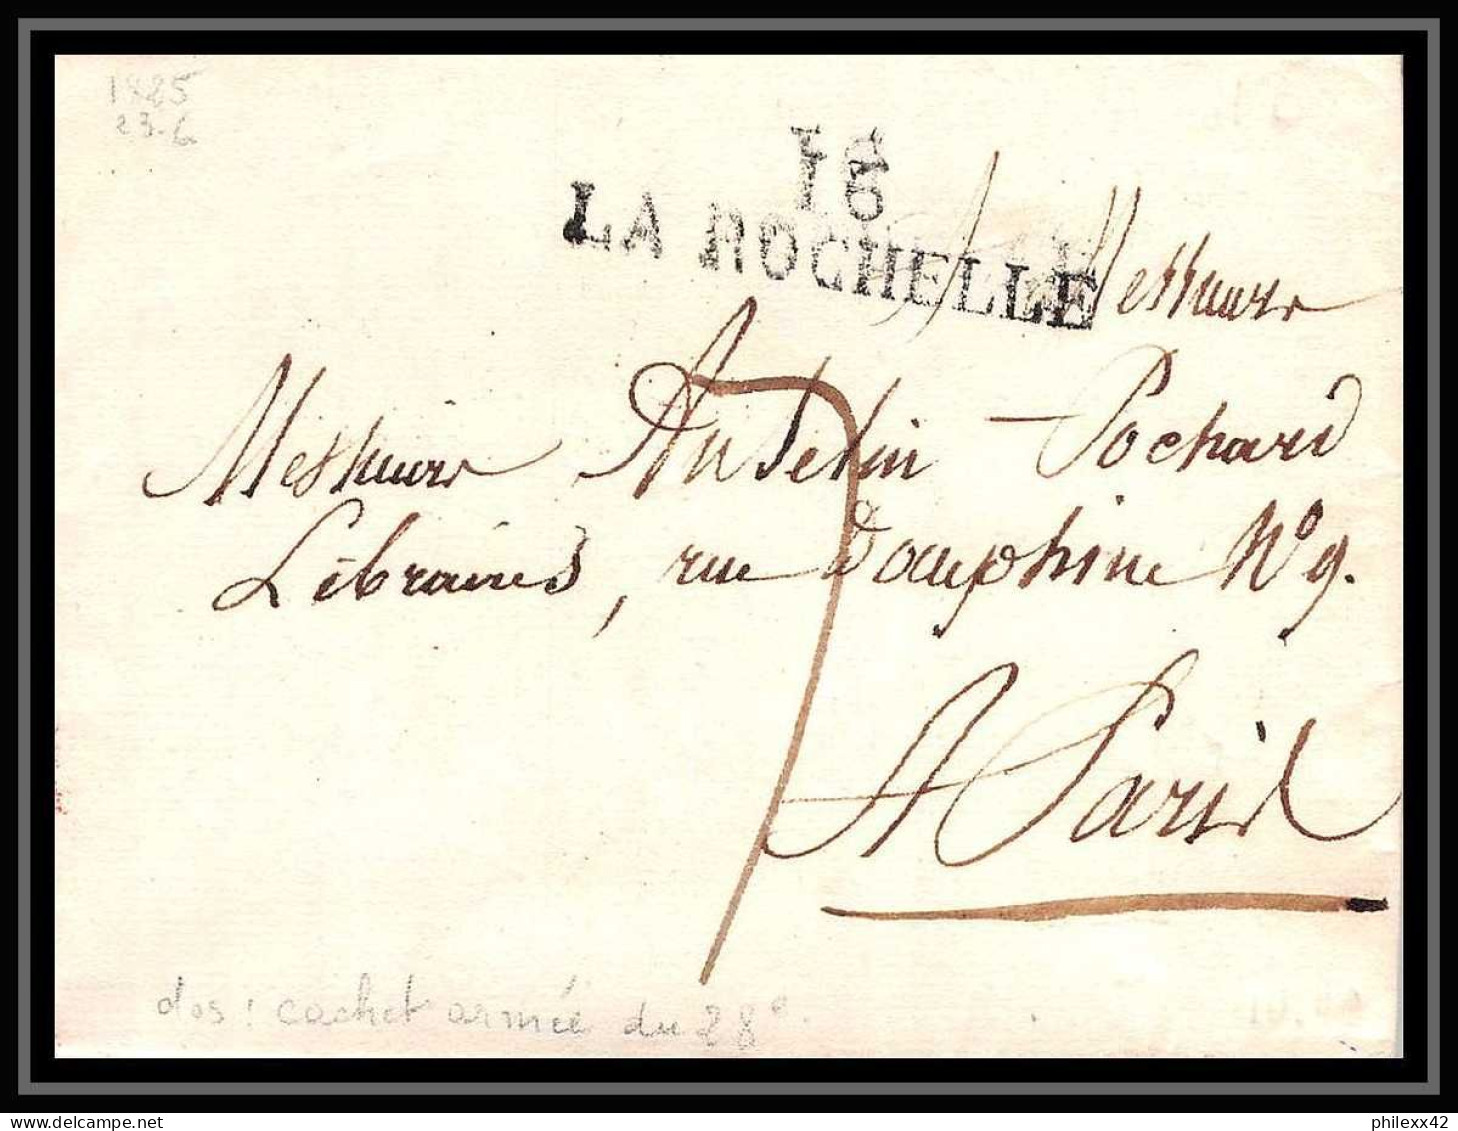 1825
23-6
16
LA ROCHELLE
A Messieurs
Messieurs Anselin Pochard
Libraires, rue Dauphine Nº 9.
A Paris
7
dos : cachet armée du 28e.
philexx42